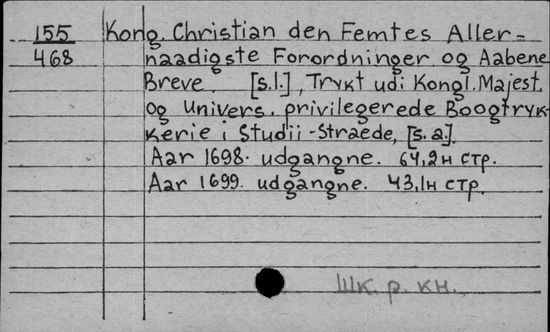 155 Kong. Christian den Femtes Aller=
468 naadigste Forordninger og Aabene
Breve. [s.l.], Trykt udi Kongl. Majest.
og Univers. privilegerede Boogtryk-
kerie i Studii-Straede, [s.a.].
Aar 1698. udgangne. 64,2н стр.
Aar 1699. udgangne. 43,1н стр.
Шк. р. кн.